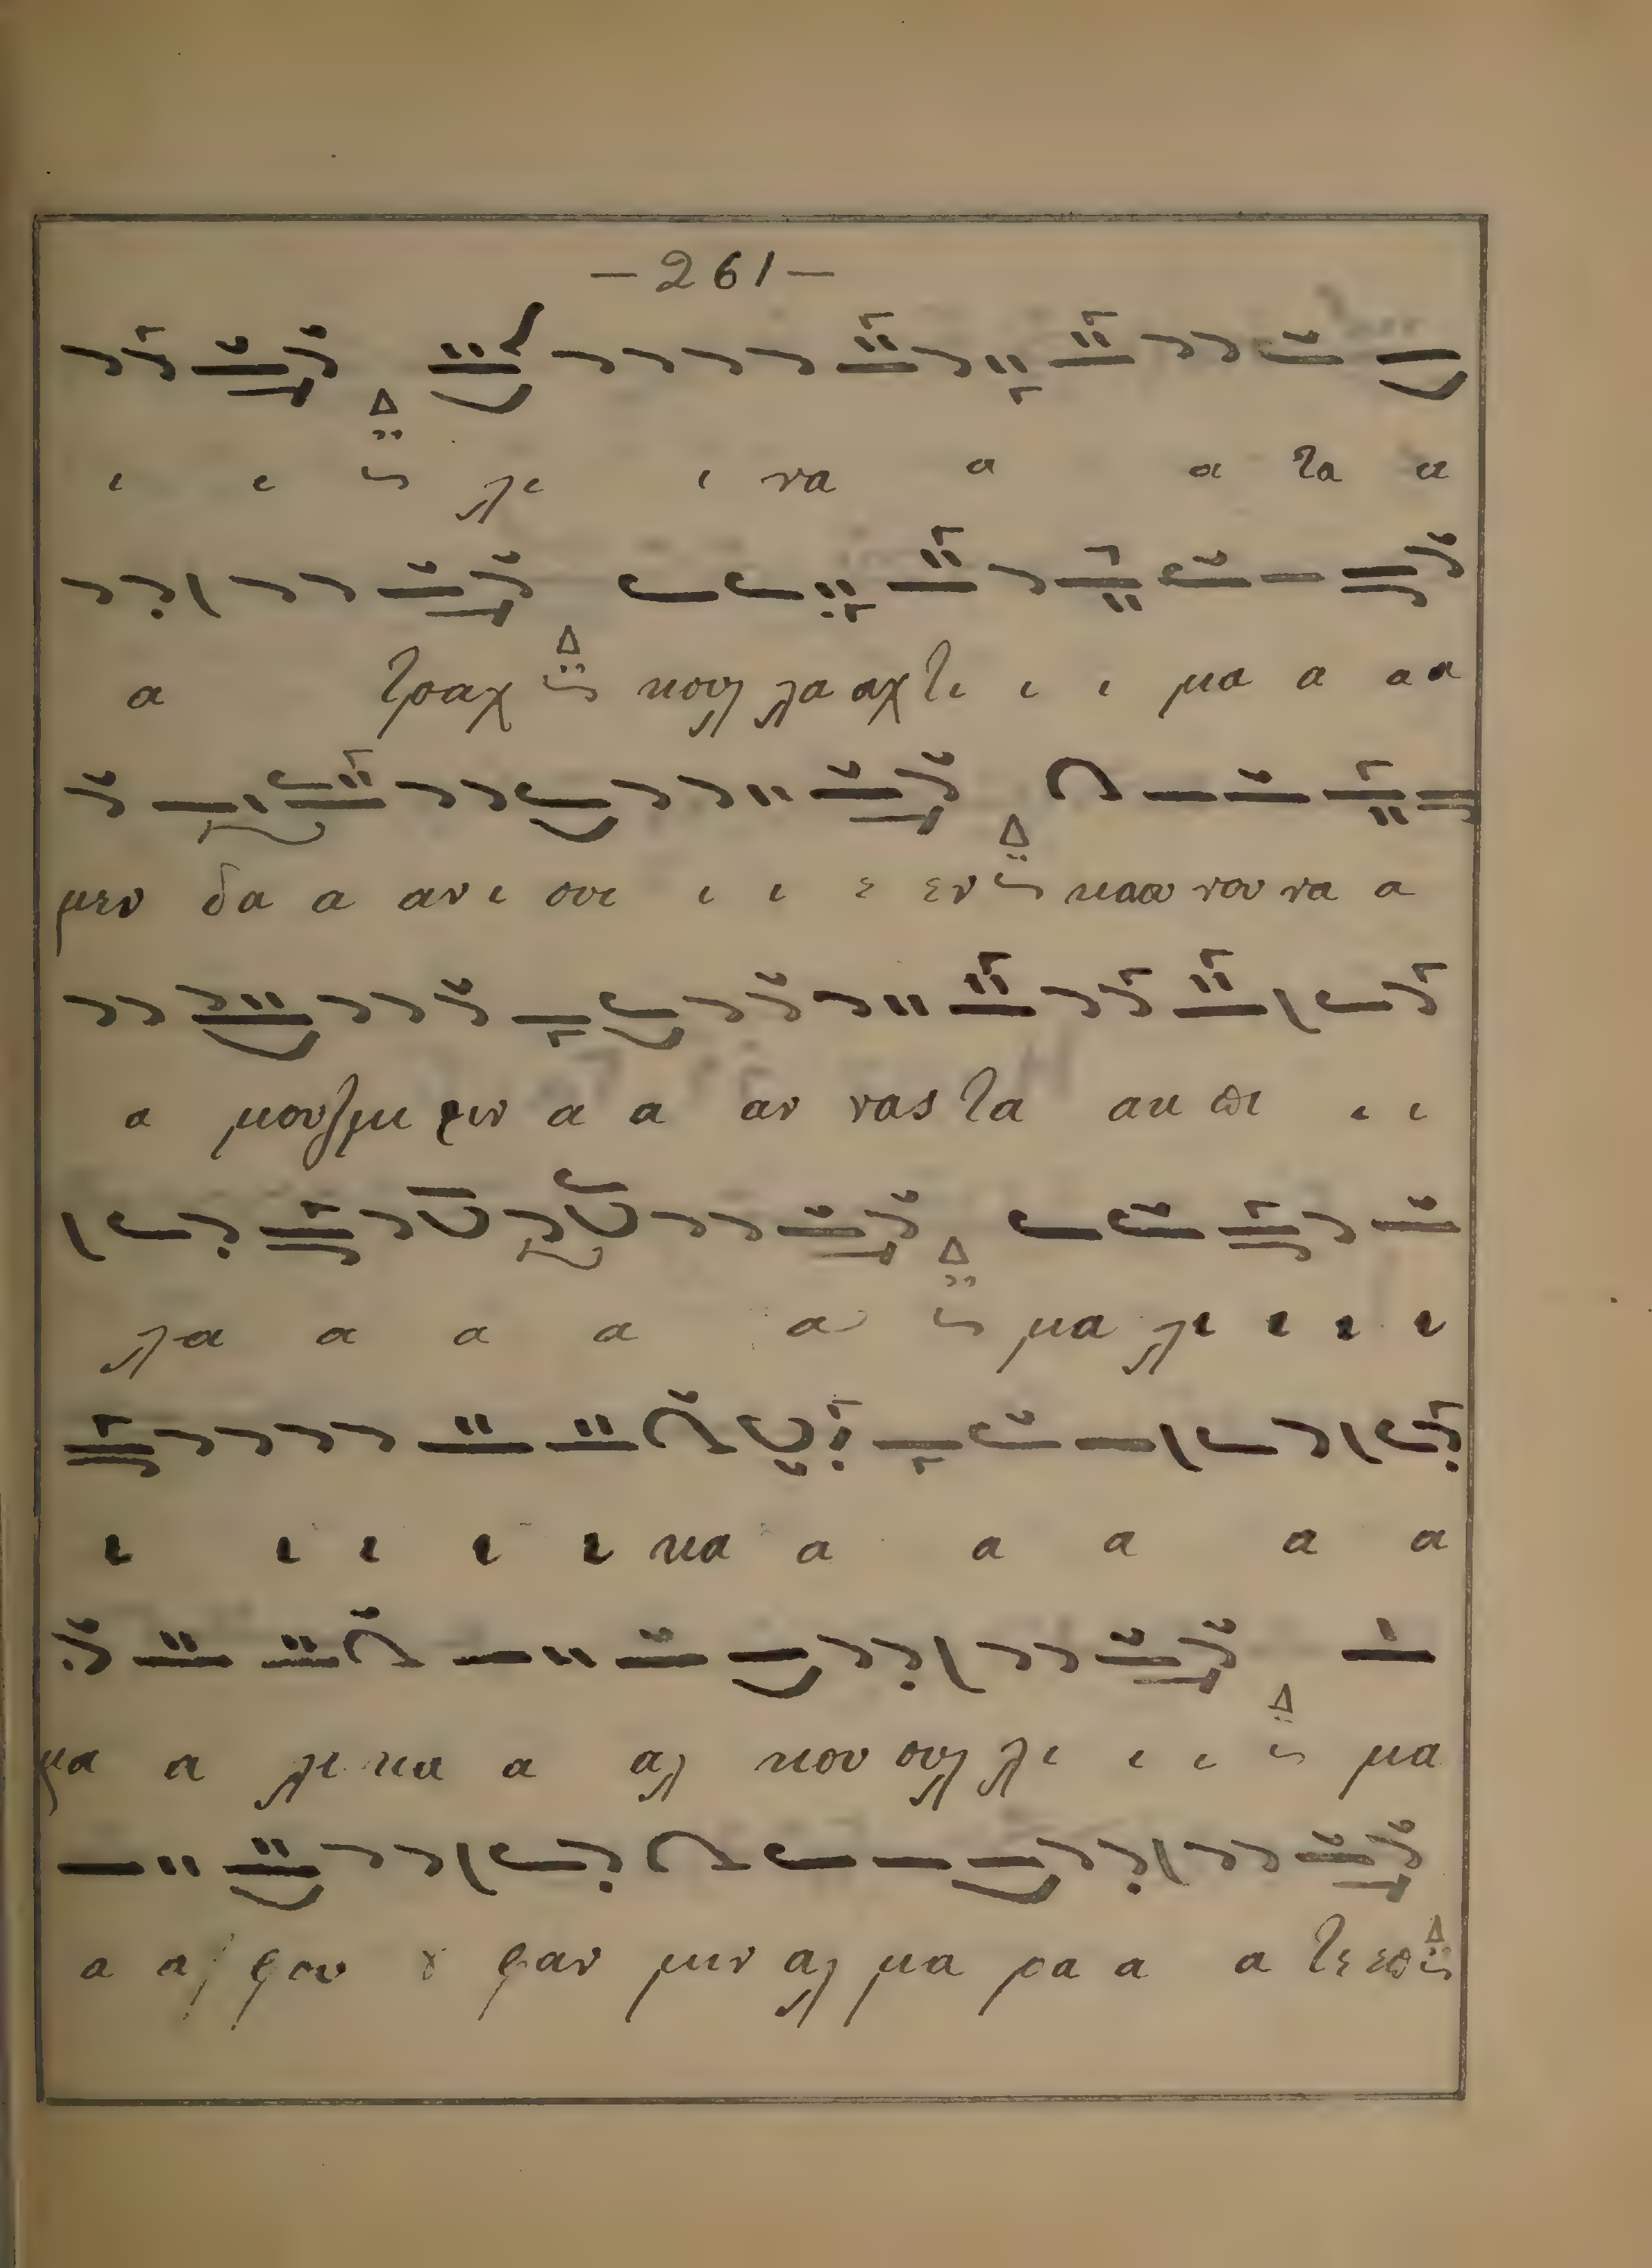 —261—
ι ι λι ι να α α τα α
α τραχ κουλ λα αχ τι ι ι μα α α α
μεν δα α αν ι ουι ι ι ε εν κααυ νου να α
α μου μι α α αν νας τα ακ πι ι ι
λα α α α α μα λι ι ι ι
ι ι ι ι ι κα α α α α α
μα α λι κα α αλ κου ουλ λι ι ι μα
α α φου ȣ φαν μιν αλ μα ρα α α τε επ